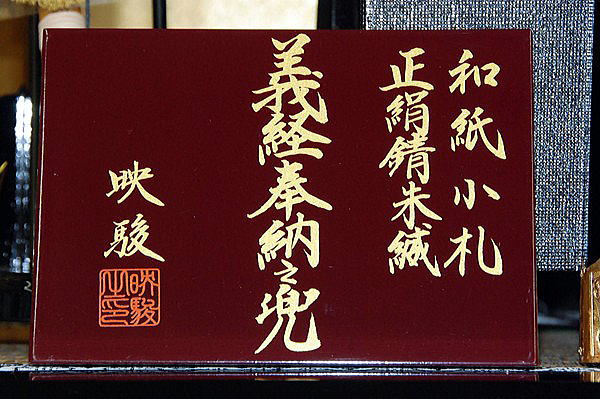 和紙小札
正絹錆朱縅
義経奉納之兜
映駿
映駿之印